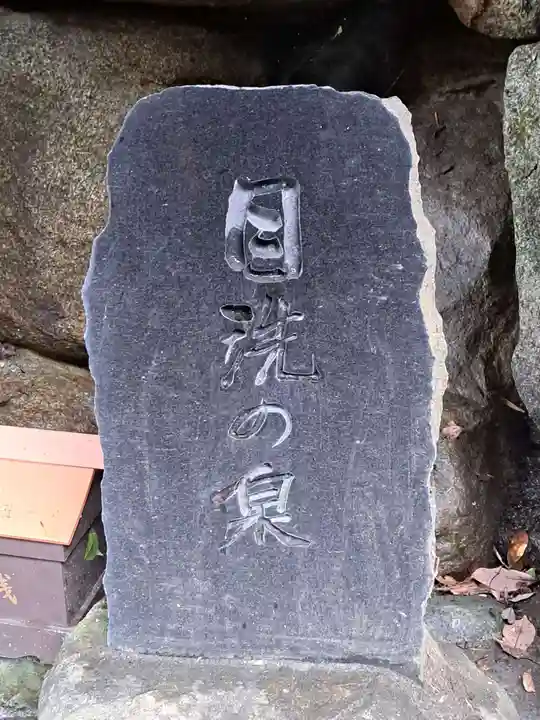 目洗の泉